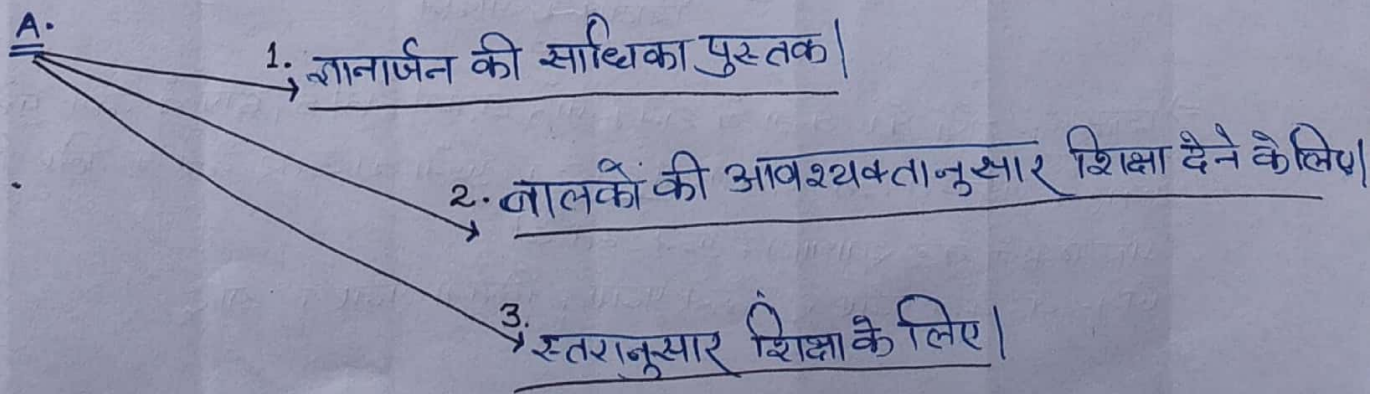 A.
1. ज्ञानार्जन की साधिका पुस्तक|
2. बालकों की आवश्यक्तानुसार शिक्षा देने के लिए|
3. स्तरानुसार शिंक्षा के लिए|